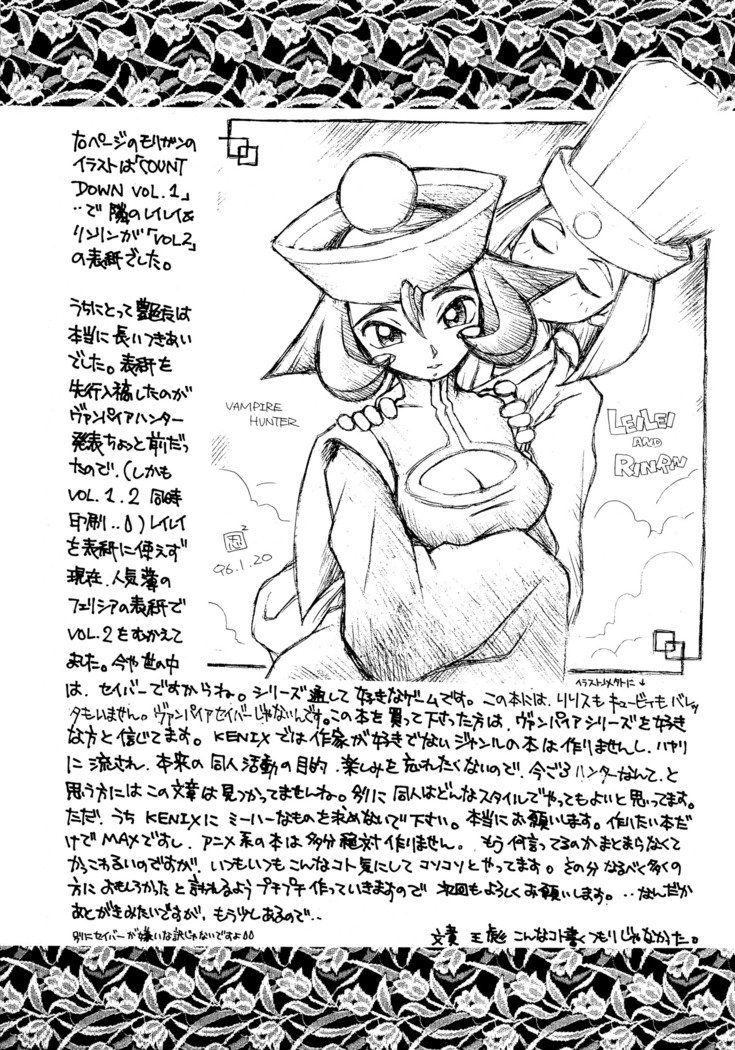 右ページのモリガンの
イラストは「COUNT
DOWN VOL.1」
‥で隣のレイレイ&
リンリンが「VOL2」
の表紙でした。
うちにとって
本当に長いつきあい
でした。表紙を
先行入稿したのが
ヴァンパイアハンター
発表ちょっと前だっ
たので、(しかも
VOL.1.2 同時
印刷‥) レイレイ
を表紙に使えず
現在、人気薄の
フェリシアの表紙で
VOL.2をむかえて
ました。今や世の中
VAMPIRE
HUNTER
LEILEI
AND
RINRIN
忍2
'96.1.20
イラスト/メクトに↓
は、セイバーですからね。シリーズ通して好きなゲームです。この本には、リリスもキュービィもバレッ
タもいません。ヴァンパイアセイバーじゃないんです。この本を買って下さった方は、ヴァンパイアシリーズを好き
な方と信じてます。KENIXでは作家が好きでないジャンルの本は作りませんし、ハヤリ
に流され、本来の同人活動の目的、楽しみを忘れたくないので、今ごろハンターなんて、と
思う方にはこの文章は見つかってませんね。別に同人はどんなスタイルでやってもよいと思ってます。
ただ、うち KENIXにミーハーなものを求めないで下さい。本当にお願いします。作りたい本だ
けでMAXですし、アニメ系の本は多分絶対作りません。もう何言ってるのかまとまらなくて
かっこわるいのですが、いつもいつもこんなコト気にしてコソコソとやってます。その分なるべく多くの
方におもしろかったと言われるようプチプチ作っていきますので 次回もよろしくお願いします。‥なんだか
あとがきみたいですが、もう少しあるので‥
別にセイバーが嫌いな訳じゃないですよ
文責 王 こんなコト書くつもりじゃなかった。